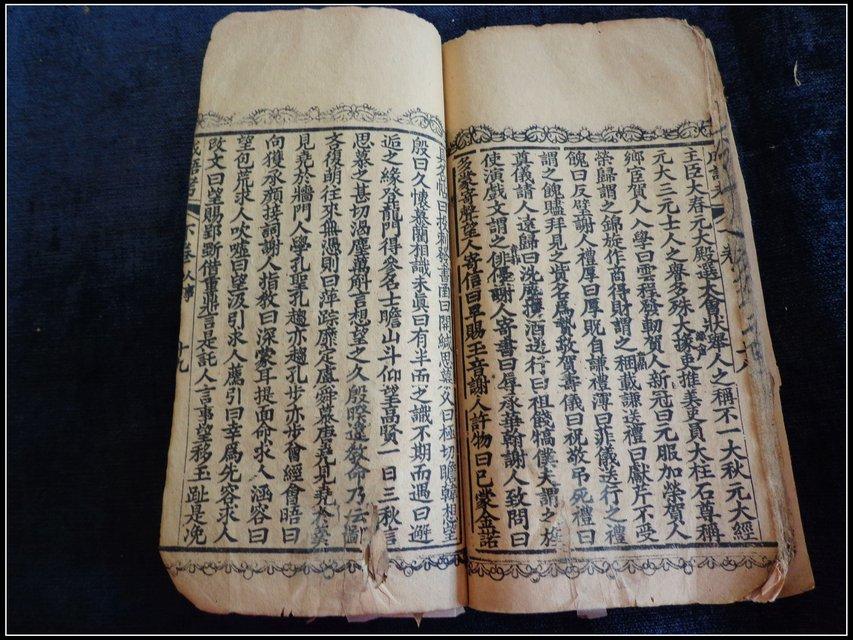 主臣大春元大殿選大會狀舉人之稱不一大秋元大經
元大三元士人之譽多殊大掾吏推美吏員大柱石尊稱
鄉宦賀人入學曰雲程發軔賀人新冠曰元服加榮賀人
榮歸謂之錦旋作商得財謂之稇載謙送禮曰獻芹不受
餽曰反璧謝人禮厚曰厚貺自謙禮薄曰菲儀送行之禮
謂之餽贐拜見之贄名為贄敬賀壽儀曰祝敬弔死禮曰
奠儀請人遠歸曰洗塵攜酒送行曰祖餞犒僕夫謂之旌
使演戲文謂之俳優謝人寄書曰辱承華翰謝人致問曰
多蒙寄聲望人寄信曰早賜玉音謝人許物曰已蒙金諾
具名帖曰投刺發書函曰開緘思慕久曰極切瞻韓想望
殷曰久懷慕藺相識未真曰有半面之識不期而遇曰邂
逅之緣登龍門得參名士瞻山斗仰望高賢一日三秋言
思慕之甚切渴塵萬斛言想望之久殷暌違教命乃云鄙
吝復萌往來無憑則曰萍踪靡定虞舜慕唐堯見堯於羹
見堯於牆門人學孔聖孔趨亦趨孔步亦步曾經會晤曰
向獲承顏接詞謝人指教曰深蒙耳提面命求人涵容曰
望包荒求人吹噓曰望汲引求人薦引曰幸為先容求人
改文曰望賜郢斲借重鼎言是託人言事望移玉趾是浼
成語考 下卷 人事 十九